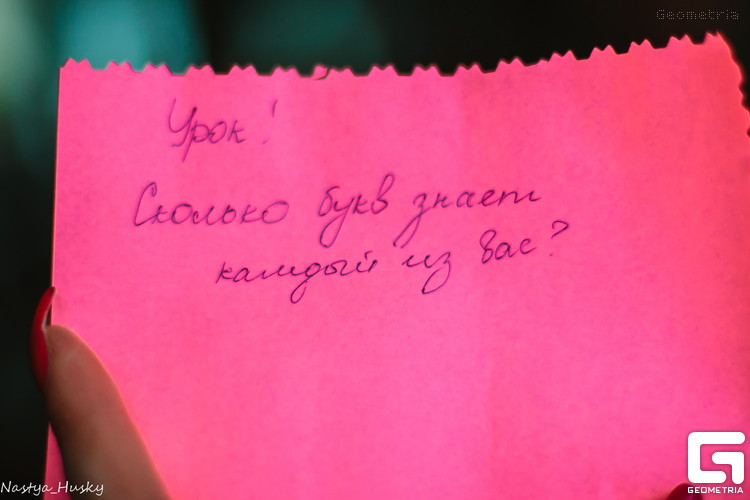 Geometria
Урок!
Сколько букв знает
каждый из вас?
Nastya_Husky
GEOMETRIA